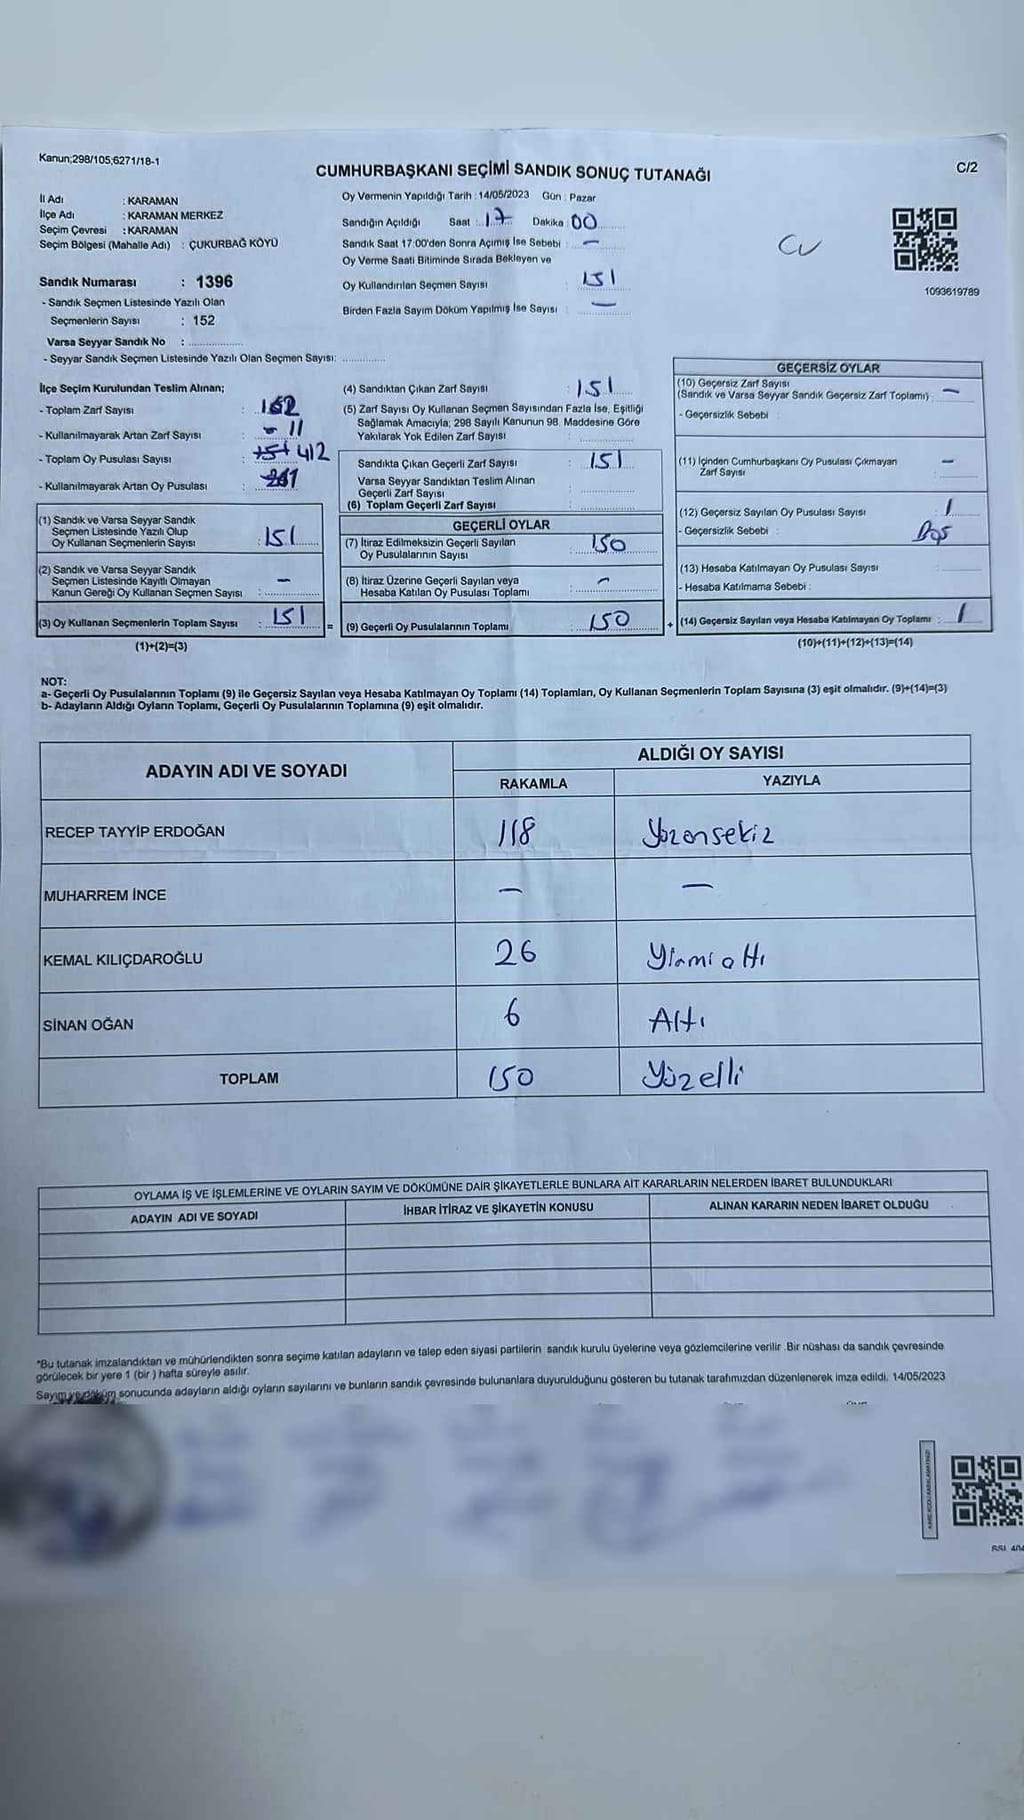 Kanun;298/105;6271/18-1
CUMHURBAŞKANI SEÇİMİ SANDIK SONUÇ TUTANAĞI
C/2
İl Adı : KARAMAN
İlçe Adı : KARAMAN MERKEZ
Seçim Çevresi : KARAMAN
Seçim Bölgesi (Mahalle Adı) : ÇUKURBAĞ KÖYÜ
Sandık Numarası : 1396
- Sandık Seçmen Listesinde Yazılı Olan
Seçmenlerin Sayısı : 152
Varsa Seyyar Sandık No :
- Seyyar Sandık Seçmen Listesinde Yazılı Olan Seçmen Sayısı:
Oy Vermenin Yapıldığı Tarih : 14/05/2023 Gün : Pazar
Sandığın Açıldığı Saat : 17 Dakika : 00
Sandık Saat 17:00'den Sonra Açımış İse Sebebi : —
Oy Verme Saati Bitiminde Sırada Bekleyen ve
Oy Kullandırılan Seçmen Sayısı : 151
Birden Fazla Sayım Döküm Yapılmış İse Sayısı : —
1093619789
İlçe Seçim Kurulundan Teslim Alınan;
- Toplam Zarf Sayısı : 162
- Kullanılmayarak Artan Zarf Sayısı : 11
- Toplam Oy Pusulası Sayısı : 412
- Kullanılmayarak Artan Oy Pusulası :
(1) Sandık ve Varsa Seyyar Sandık
Seçmen Listesinde Yazılı Olup
Oy Kullanan Seçmenlerin Sayısı : 151
(2) Sandık ve Varsa Seyyar Sandık
Seçmen Listesinde Kayıtlı Olmayan
Kanun Gereği Oy Kullanan Seçmen Sayısı : —
(3) Oy Kullanan Seçmenlerin Toplam Sayısı : 151 =
(1)+(2)=(3)
(4) Sandıktan Çıkan Zarf Sayısı : 151
(5) Zarf Sayısı Oy Kullanan Seçmen Sayısından Fazla İse, Eşitliği
Sağlamak Amacıyla; 298 Sayılı Kanunun 98. Maddesine Göre
Yakılarak Yok Edilen Zarf Sayısı :
Sandıkta Çıkan Geçerli Zarf Sayısı : 151
Varsa Seyyar Sandıktan Teslim Alınan
Geçerli Zarf Sayısı :
(6) Toplam Geçerli Zarf Sayısı :
GEÇERLİ OYLAR
(7) İtiraz Edilmeksizin Geçerli Sayılan
Oy Pusulalarının Sayısı : 150
(8) İtiraz Üzerine Geçerli Sayılan veya
Hesaba Katılan Oy Pusulası Toplamı : —
(9) Geçerli Oy Pusulalarının Toplamı : 150 +
GEÇERSİZ OYLAR
(10) Geçersiz Zarf Sayısı
(Sandık ve Varsa Seyyar Sandık Geçersiz Zarf Toplamı) : —
- Geçersizlik Sebebi :
(11) İçinden Cumhurbaşkanı Oy Pusulası Çıkmayan
Zarf Sayısı : —
(12) Geçersiz Sayılan Oy Pusulası Sayısı : 1
- Geçersizlik Sebebi : Boş
(13) Hesaba Katılmayan Oy Pusulası Sayısı :
- Hesaba Katılmama Sebebi :
(14) Geçersiz Sayılan veya Hesaba Katılmayan Oy Toplamı : 1
(10)+(11)+(12)+(13)=(14)
NOT:
a- Geçerli Oy Pusulalarının Toplamı (9) ile Geçersiz Sayılan veya Hesaba Katılmayan Oy Toplamı (14) Toplamları, Oy Kullanan Seçmenlerin Toplam Sayısına (3) eşit olmalıdır. (9)+(14)=(3)
b- Adayların Aldığı Oyların Toplamı, Geçerli Oy Pusulalarının Toplamına (9) eşit olmalıdır.
ADAYIN ADI VE SOYADI ALDIĞI OY SAYISI
RAKAMLA YAZIYLA
RECEP TAYYİP ERDOĞAN 118 Yüzonsekiz
MUHARREM İNCE — —
KEMAL KILIÇDAROĞLU 26 Yirmi altı
SİNAN OĞAN 6 Altı
TOPLAM 150 Yüzelli
OYLAMA İŞ VE İŞLEMLERİNE VE OYLARIN SAYIM VE DÖKÜMÜNE DAİR ŞİKAYETLERLE BUNLARA AİT KARARLARIN NELERDEN İBARET BULUNDUKLARI
ADAYIN ADI VE SOYADI İHBAR İTİRAZ VE ŞİKAYETİN KONUSU ALINAN KARARIN NEDEN İBARET OLDUĞU
*Bu tutanak imzalandıktan ve mühürlendikten sonra seçime katılan adayların ve talep eden siyasi partilerin sandık kurulu üyelerine veya gözlemcilerine verilir .Bir nüshası da sandık çevresinde
görülecek bir yere 1 (bir ) hafta süreyle asılır.
Sayım ve döküm sonucunda adayların aldığı oyların sayılarını ve bunların sandık çevresinde bulunanlara duyurulduğunu gösteren bu tutanak tarafımızdan düzenlenerek imza edildi. 14/05/2023